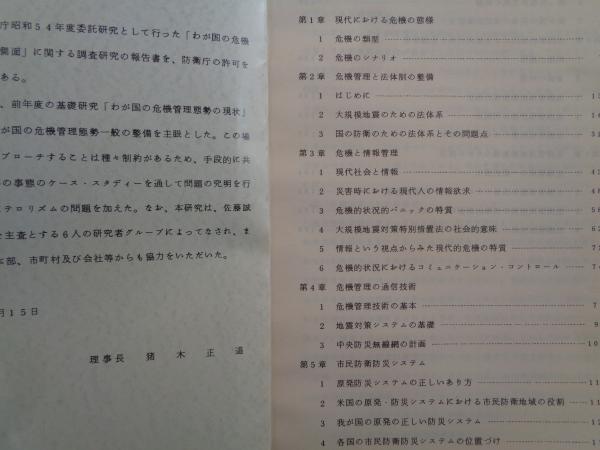 庁昭和５４年度委託研究として行った「わが国の危機
側面」に関する調査研究の報告書を、防衛庁の許可を
ある。
、前年度の基礎研究「わが国の危機管理態勢の現状」
が国の危機管理態勢一般の整備を主眼とした。この場
プローチすることは種々制約があるため、手段的に共
の事態のケース・スタディーを通して問題の究明を行
テロリズムの問題を加えた。なお、本研究は、佐藤誠
を主査とする６人の研究者グループによってなされ、ま
本部、市町村及び会社等からも協力をいただいた。
月１５日
理事長 猪木正道
第１章 現代における危機の態様
１ 危機の類型
２ 危機のシナリオ
第２章 危機管理と法体制の整備
１ はじめに
２ 大規模地震のための法体系
３ 国の防衛のための法体系とその問題点
第３章 危機と情報管理
１ 現代社会と情報
２ 災害時における現代人の情報欲求
３ 危機的状況的パニックの特質
４ 大規模地震対策特別措置法の社会的意味
５ 情報という視点からみた現代的危機の特質
６ 危機的状況におけるコミュニケーション・コントロール
第４章 危機管理の通信技術
１ 危機管理技術の基本
２ 地震対策システムの基礎
３ 中央防災無線網の計画
第５章 市民防衛防災システム
１ 原発防災システムの正しいあり方
２ 米国の原発・防災システムにおける市民防衛地域の役割
３ 我が国の原発の正しい防災システム
４ 各国の市民防衛防災システムの位置づけ